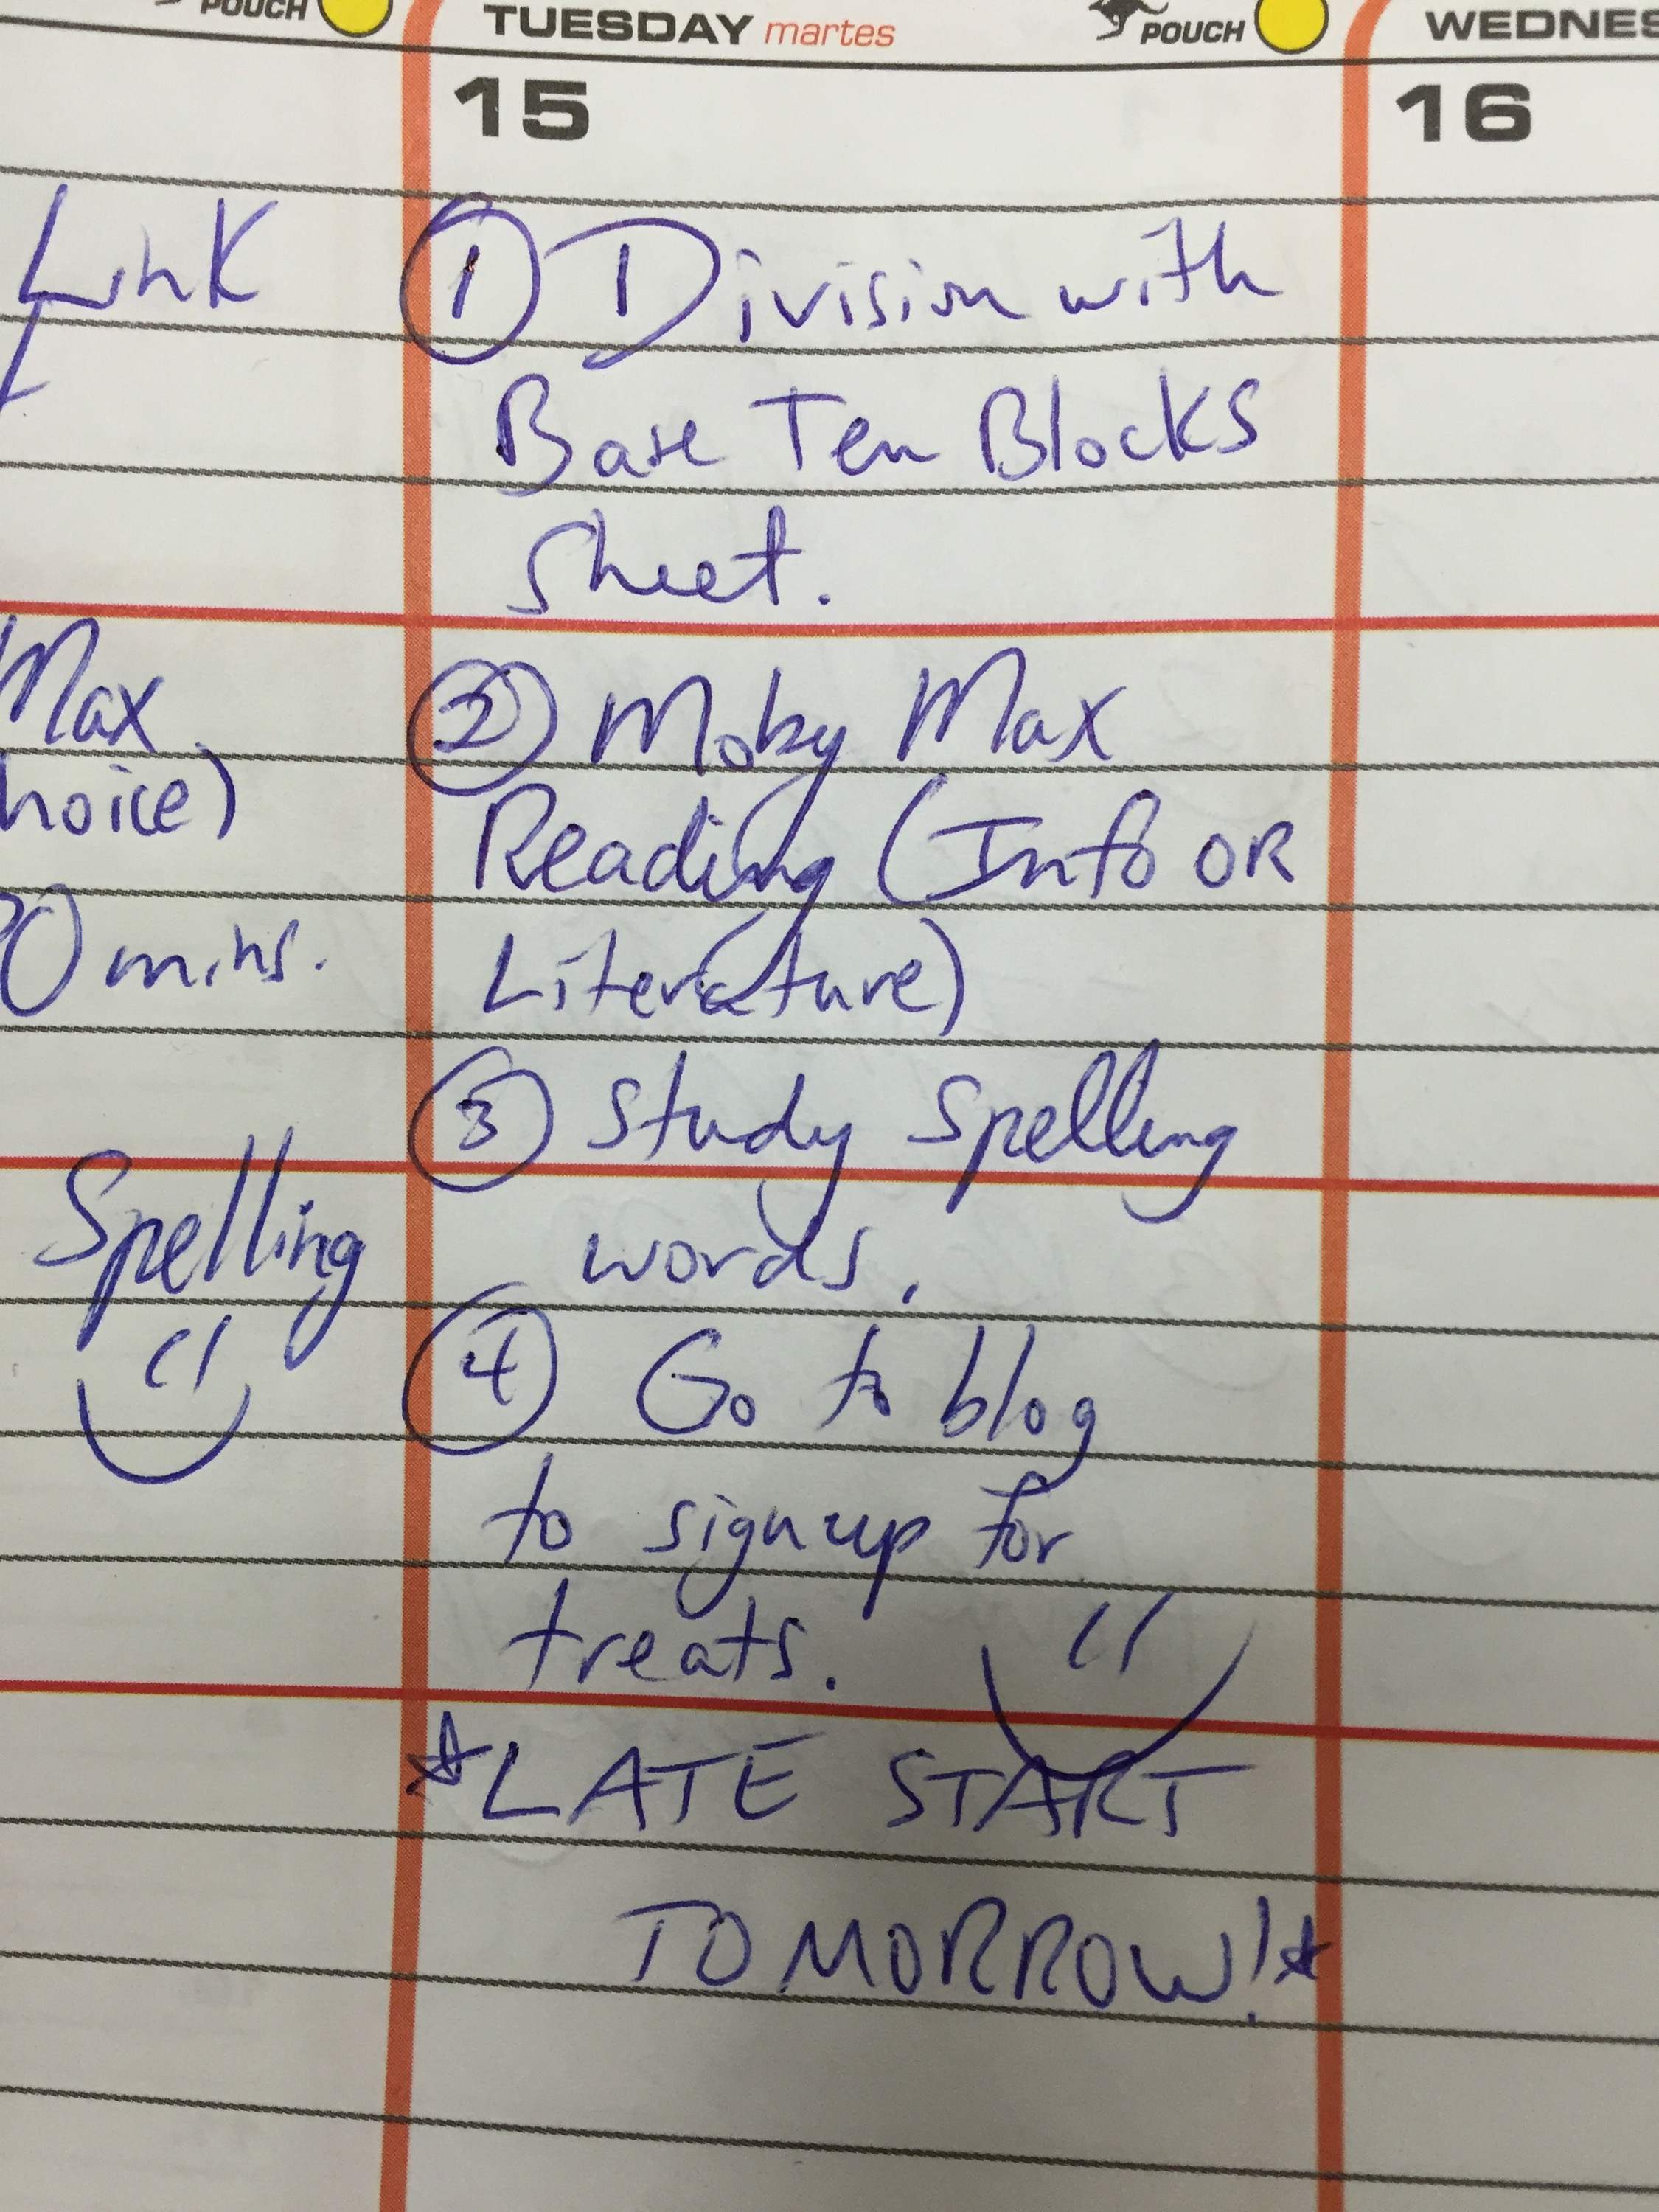 POUCH
TUESDAY martes
POUCH
WEDNES
15
16
Link
① Division with
Base Ten Blocks
Sheet.
Max
hoice)
0 mins.
② Moby Max
Reading (Info OR
Literature)
③ Study Spelling
words.
Spelling
④ Go to blog
to sign up for
treats.
☆LATE START
TOMORROW!☆